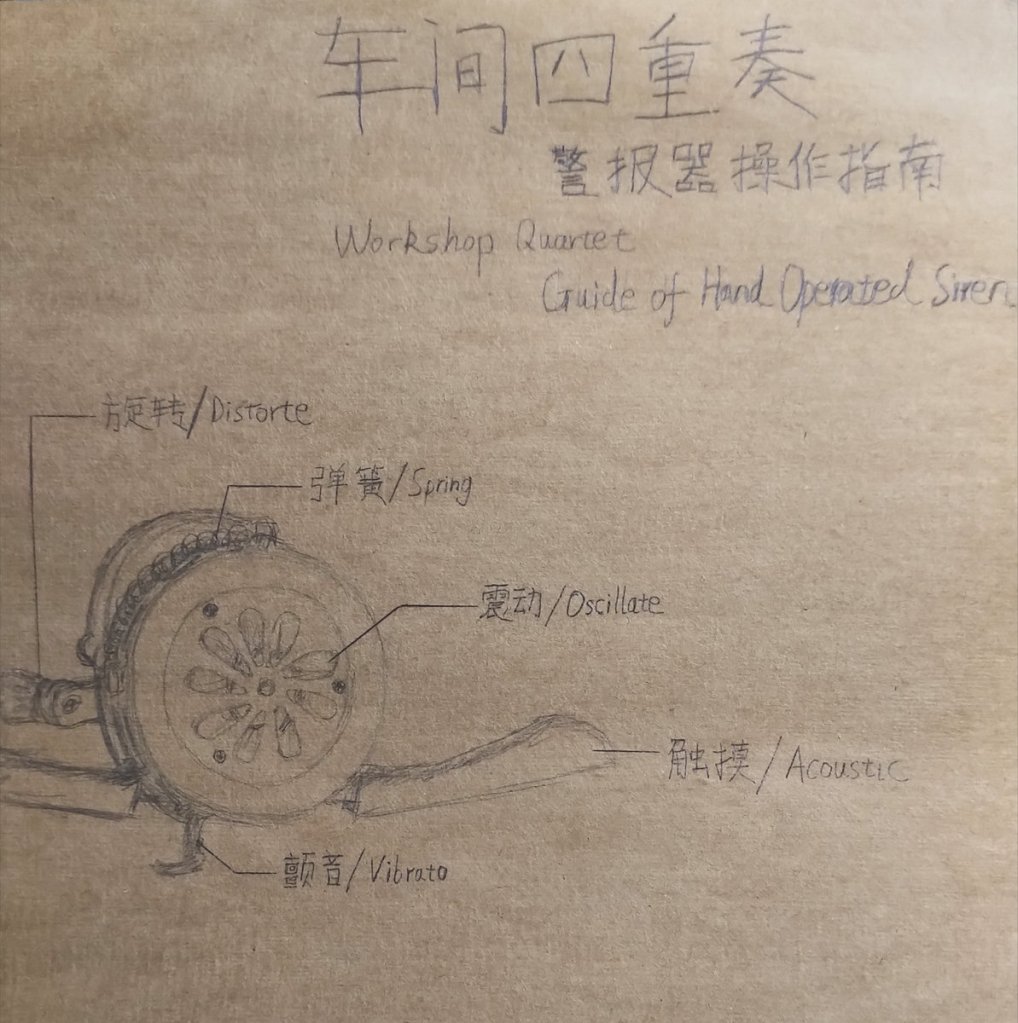 车间四重奏
警报器操作指南
Workshop Quartet
Guide of Hand Operated Siren
旋转/Distorte
弹簧/Spring
震动/Oscillate
触摸/Acoustic
颤音/Vibrato